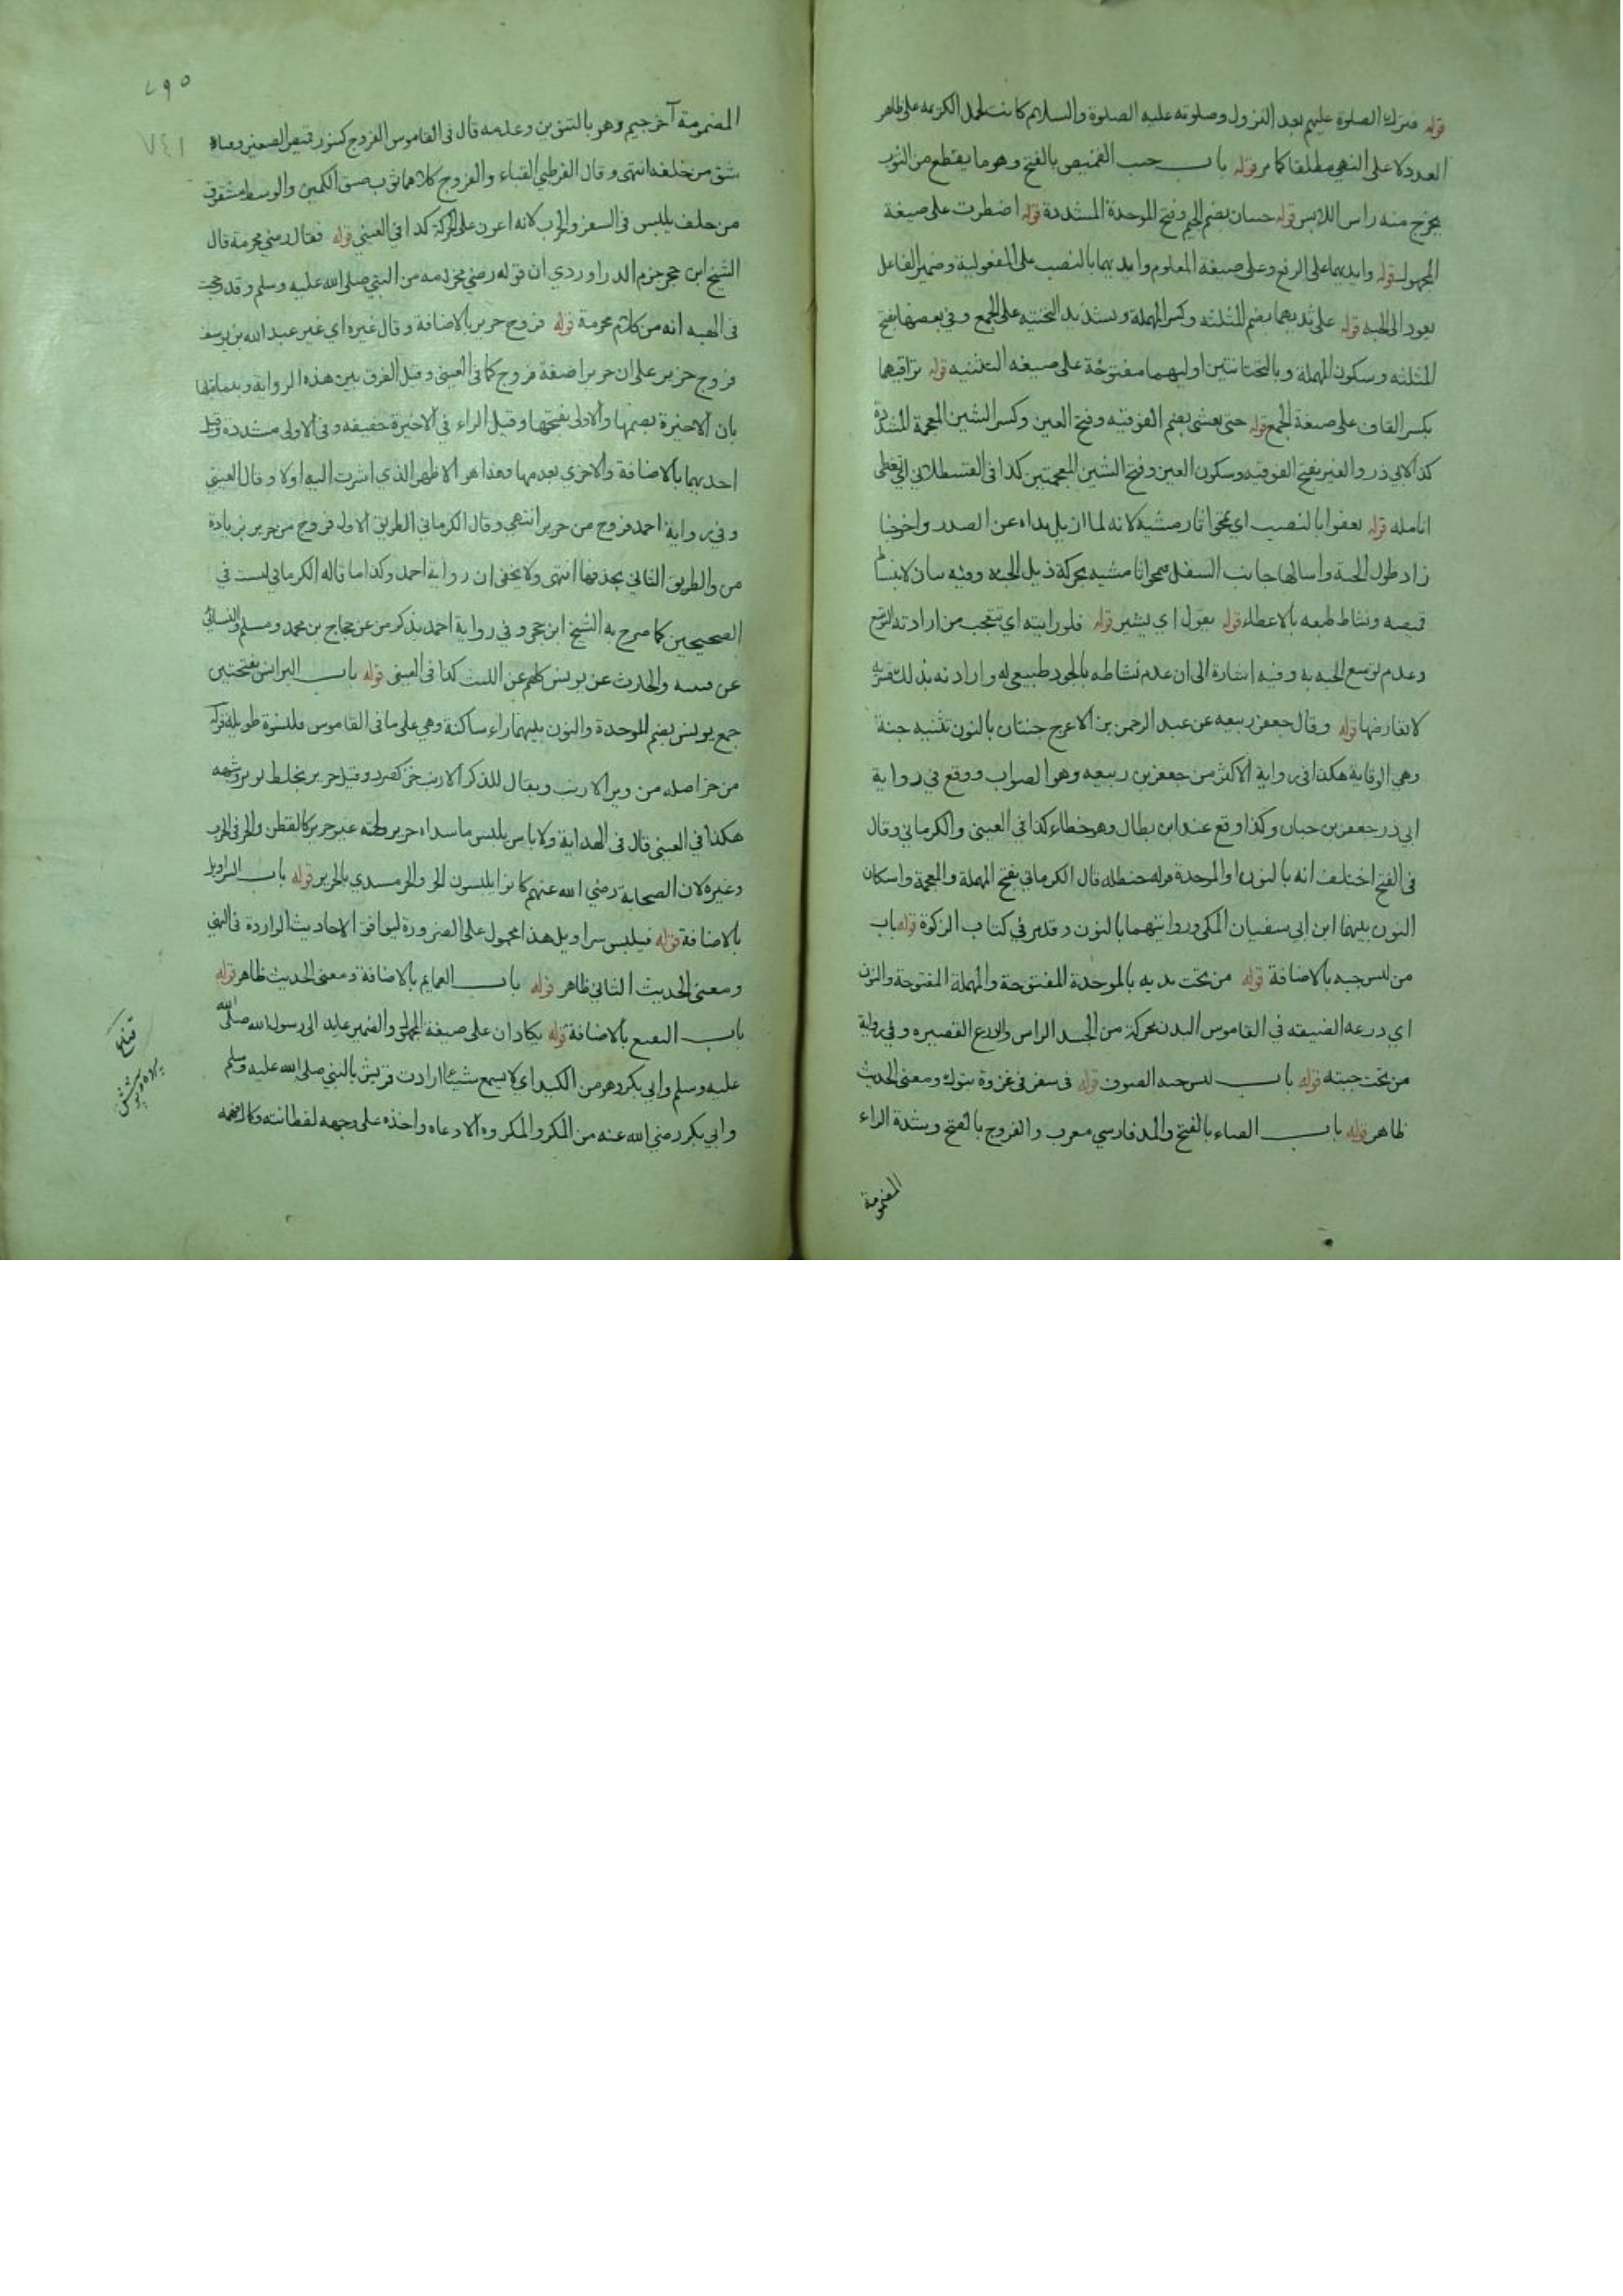 قوله فترك الصلوة عليهم بعد النزول وصلوته عليه الصلوة والسلام كانت لحمل الكريمه على ظاهر
العدد لا على النهي مطلقا كما مر قوله باب جيب القميص بالفتح وهو ما يقطع من الثوب
يخرج منه راس اللابس قوله جبتان بضم الجيم وفتح الموحدة المشددة قوله اضطرت على صيغة
المجهول قوله وايديهما على الرفع وعلى صيغة المعلوم وايديهما بالنصب على المفعولية وضمير الفاعل
يعود الى الجبه قوله على ثديهما بضم المثلثه وكسر المهملة وبتشديد التحتيه على الجمع وفي بعضها بفتح
المثلثه وسكون المهملة وبالتحتانتين اوليهما مفتوحة على صيغه التثنيه قوله تراقيهما
بكسر القاف على صيغة الجمع قوله حتى يغشى بضم الفوقيه وفتح الغين وكسر الشين المعجمة المشددة
كذا لابي ذر والغير بفتح الفوقيه وسكون الغين وفتح الشين المعجمتين كذا في القسطلاني اي تغطى
انامله قوله يعفوا بالنصب اي يمحوا اثار مشيه لانه لما ازيل يداه عن الصدر
زاد طول الجبة واسالها جانب السفل محوا اثار مشيه بحركة ذيل الجبه وفيه بيان لانبساط
قميصه ونشاط طبعه بالاعطاء قوله يقول اي يشير قوله فلو رايته اي تتعجب من ارادته التوسع
وعدم توسع الجبه به وفيه اشارة الى ان عدم نشاطه بالجود طبيعي له وارادته بذلك
لا تعارضها قوله وقال جعفر ربيعه عن عبد الرحمن بن الاعرج جنتان بالنون تثنيه جنة
وهي الوقاية هكذا في رواية الاكثر من جعفر بن ربيعه وهو الصواب ووقع في رواية
ابي ذر جعفر بن حبان وكذا وقع عند ابن بطال وهو خطاء كذا في العيني والكرماني وقال
في الفتح اختلف انه بالنون او الموحدة قوله حنظله قال الكرماني بفتح المهملة والمعجمة واسكان
النون بينهما ابن ابي سفيان المكي وروايتهما بالنون وقد مر في كتاب الزكوة قوله باب
من لبس جبه بالاضافة قوله من تحت بدنه بالموحدة المفتوحة والمهملة المفتوحة والنون
اي درعه الضيقه في القاموس البدن محركة من الجسد الراس والدرع القصيره وفي رواية
من تحت جبته قوله باب لبس جبه الصوف قوله في سفر في غزوة تبوك ومعنى الحديث
ظاهر قوله باب القباء بالفتح والمد فارسي معرب والفروج بالفتح وبشدة الراء
المضمومة
٧٤١
المضمومة آخر جيم وهو بالتنوين وعدمه قال في القاموس الفروج كتنور قميص الصغير وقباء
شق من خلفه انتهى وقال القرطبي القباء والفروج كلاهما ثوب ضيق الكمين والوسط مشقوق
من خلف يلبس في السفر والحرب لانه اعون على الحركة كذا في العيني قوله فقال رضي مخرمة قال
الشيخ ابن حجر جزم الداوردي ان قوله رضي مخرمه من النبي صلى الله عليه وسلم وقد رجحت
في الهبه انه من كلام مخرمة قوله فروج حرير بالاضافة وقال غيره اي غير عبد الله بن يوسف
فروج حرير على ان حريرا صفة فروج كما في العيني وقيل الفرق بين هذه الرواية وبين ما قبلها
بان الاخيرة بضمها والاولى بفتحها وقيل الراء في الاخيرة خفيفه وفي الاولى مشددة وقيل
احديهما بالاضافة والاخرى بعدمها وهذا هو الاظهر الذي اشرت اليه اولا وقال العيني
وفي رواية احمد فروج من حرير انتهى وقال الكرماني الطريق الاول فروج من حرير بزيادة
من والطريق الثاني بحذفها انتهى ولا يخفى ان رواية احمد وكذا ما قاله الكرماني ليست في
الصحيحين كما صرح به الشيخ ابن حجر وفي رواية احمد بذكر من عن حجاج بن محمد ومسلم والنسائي
عن قتيبه والحارث عن يونس كلهم عن الليث كذا في العيني قوله باب البرانس بفتحتين
جمع برنس بضم الموحدة والنون بينهما راء ساكنة وهي على ما في القاموس قلنسوة طويلة قوله
من خز اصله من وبر الارنب ويقال للذكر الارنب خز كصرد وقيل حرير يخلط بوبر وشبهه
هكذا في العيني قال في الهداية ولا باس بلبس ما سداه حرير ولحمته غير حرير كالقطن والخز في الحرب
وغيره لان الصحابة رضي الله عنهم كانوا يلبسون الخز والخز مسدي بالحرير قوله باب السراويل
بالاضافة قوله فيلبس سراويل هذا محمول على الضرورة ليوافق الاحاديث الواردة في النهي
ومعنى الحديث الثاني ظاهر قوله باب العمايم بالاضافة ومعنى الحديث ظاهر قوله
باب التقنع بالاضافة قوله يكادان على صيغة المجهول والضمير عايد الى رسول الله صلى الله
عليه وسلم وابي بكر وهو من الكيد اي لا يسمع شيئا ارادت قريش بالنبي صلى الله عليه وسلم
وابي بكر رضي الله عنه من المكر والمكروه الا دعاه واخذه على وجهه لفطانته وكمال فهمه